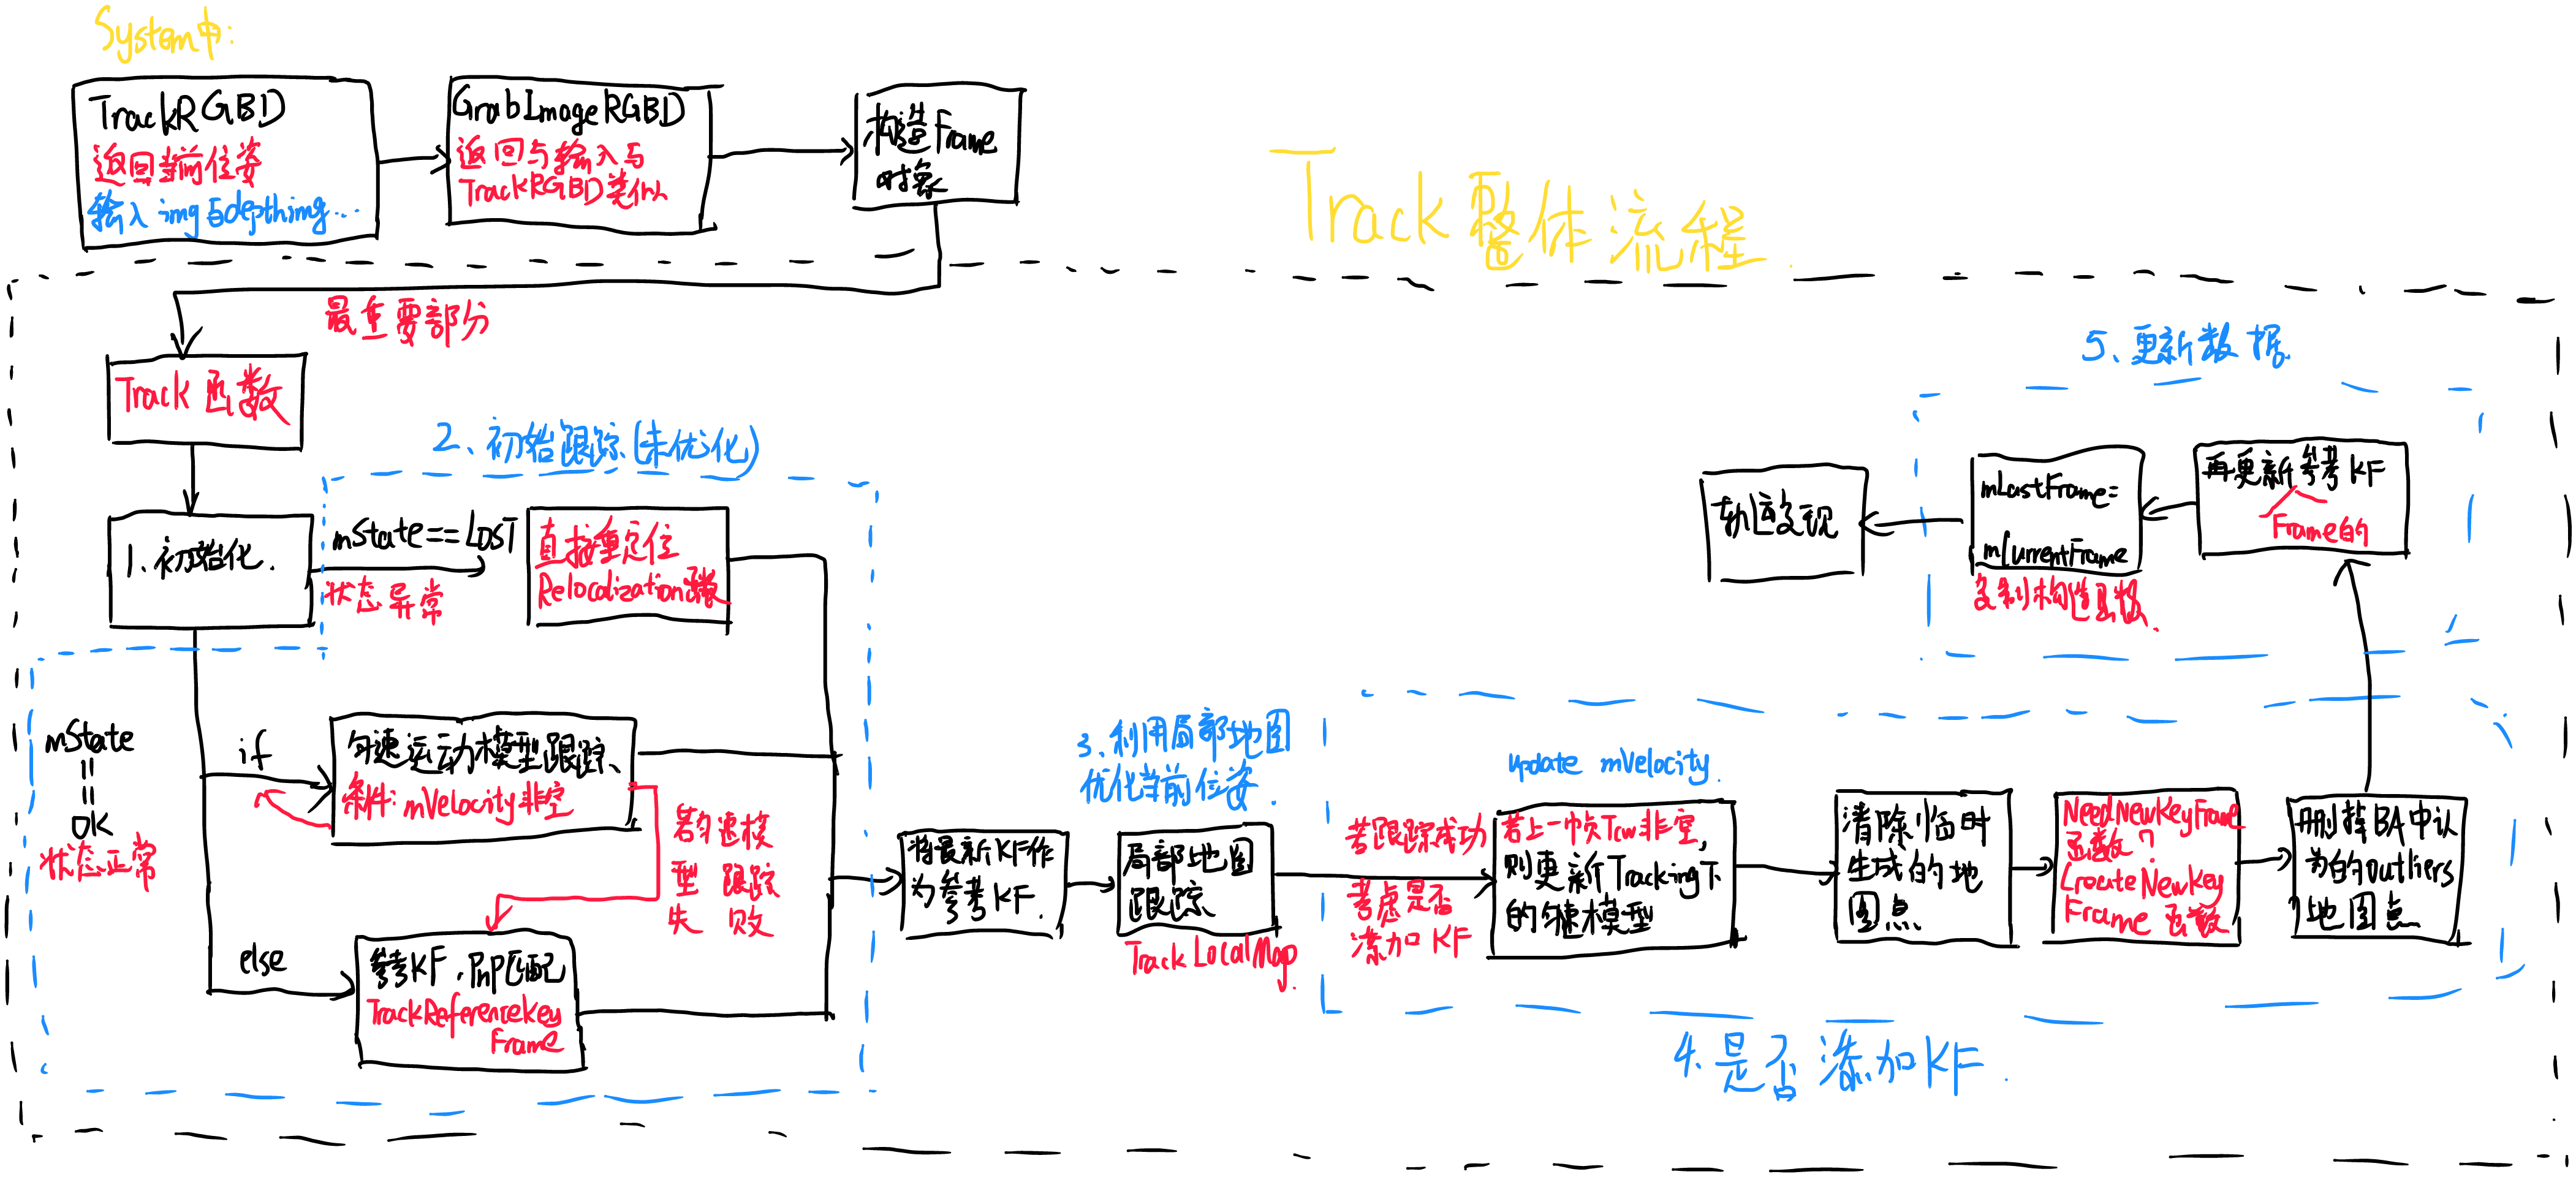 System中:
TrackRGBD
返回当前位姿
输入img与depthimg...
GrabImageRGBD
返回与输入与
TrackRGBD类似
构造Frame
对象
Track整体流程
最重要部分
Track函数
1.初始化.
2、初始跟踪(未优化)
mState==LOST
状态异常
直接重定位
Relocalization函数
mState
=
OK
状态正常
if
匀速运动模型跟踪、
条件:mVelocity非空
若匀速模
型 跟踪
失 败
else
参考KF,PnP匹配
TrackReferenceKey
Frame
将最新KF作
为参考KF.
3、利用局部地图
优化当前位姿.
局部地图
跟踪
TrackLocalMap.
若跟踪成功
考虑是否
添加KF
update mVelocity.
若上一帧Tcw非空,
则更新Tracking下
的匀速模型
清除临时
生成的地
图点
NeedNewKeyFrame
函数?
CreateNewKey
Frame 函数
删掉BA中认
为的outliers
地图点
4.是否添加KF.
5、更新数据
再更新参考KF
Frame的
mLastFrame=
mCurrentFrame
复制构造函数.
轨迹